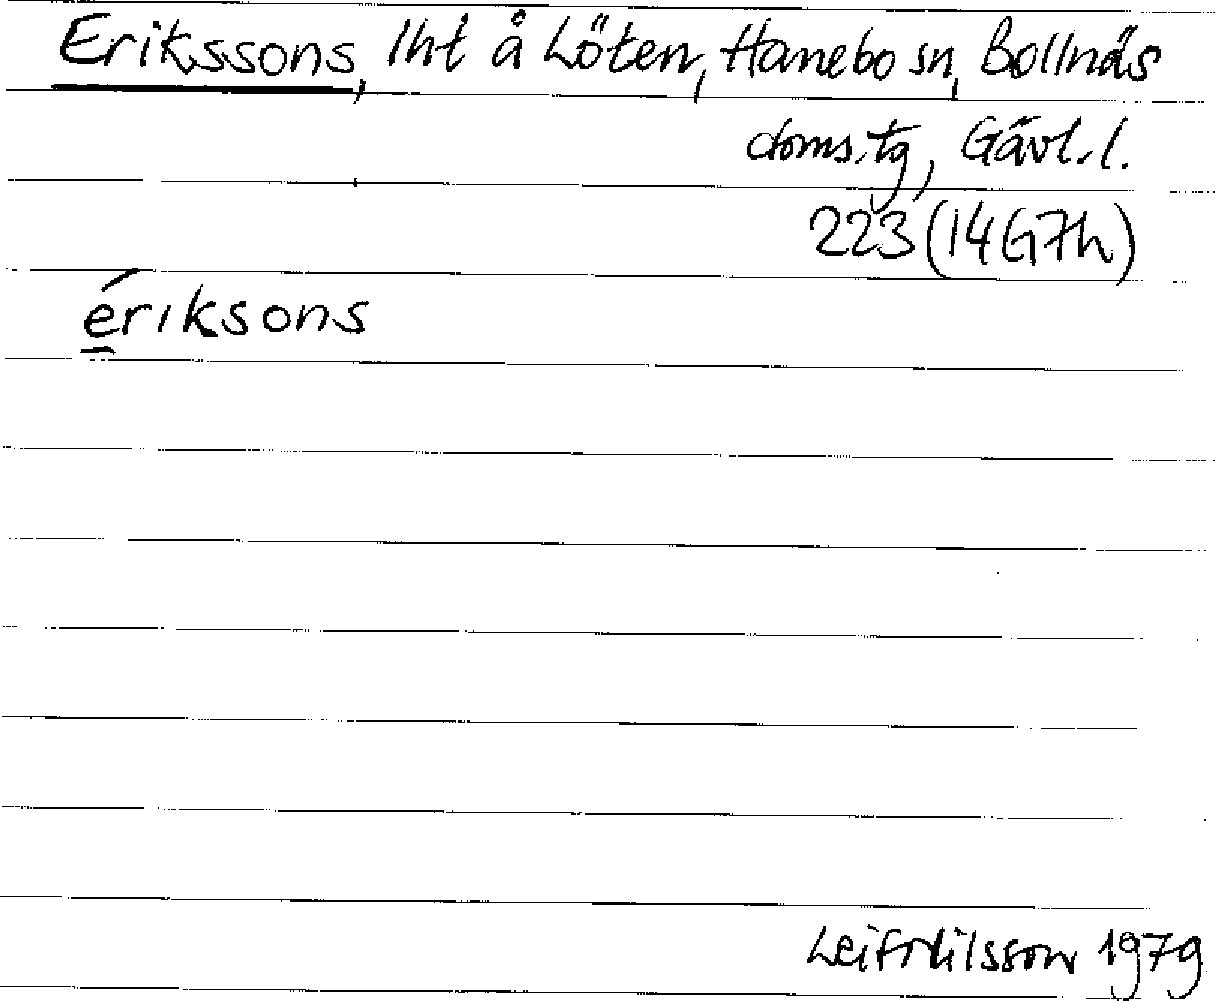 Erikssons, lht å Löten, Hanebo sn, Bollnäs
doms.tg, Gävl. l.
223 (14G7h)
ériksons
Leif Nilsson 1979